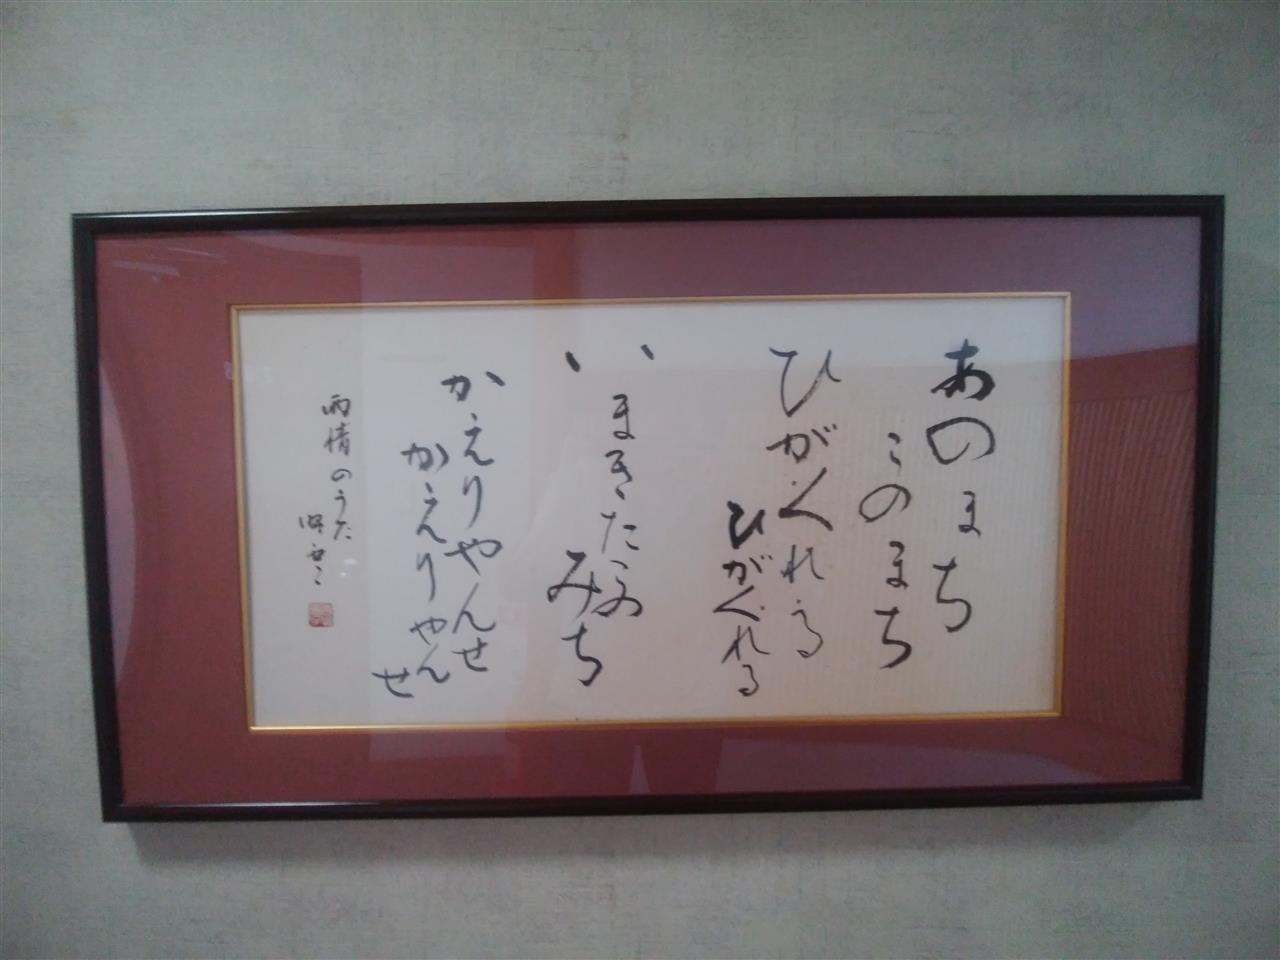 あのまち
このまち
ひがくれる
ひがくれる
いまきたこの
みち
かえりやんせ
かえりやんせ
雨情のうた